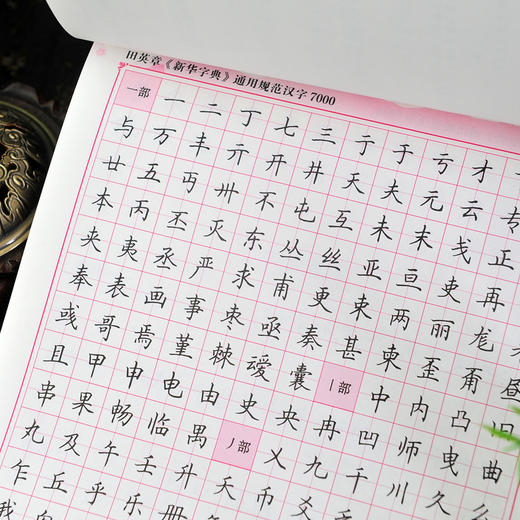 田英章《新华字典》通用规范汉字7000
一部 一 二 丁 七 三 亍 于 亏 才
与 万 丰 亓 开 井 天 夫 元 云 专
廿 五 丏 卅 不 屯 互 未 末 戈 正
本 丙 丕 灭 东 丛 丝 亚 亘 吏 再
夹 夷 丞 严 求 甫 更 束 两 丽 尨
奉 表 画 事 枣 亟 奏 甚 柬 歪 甭 昼
彧 哥 焉 堇 棘 叆 囊 丨部 中 内 凸 旧
且 甲 申 电 由 史 央 冉 凹 师 曳 曲
串 果 畅 临 禺 丿部 乂 九 千 川 久
丸 及 午 壬 升 夭 币 爻
乍 丘 乎 乐 册
我